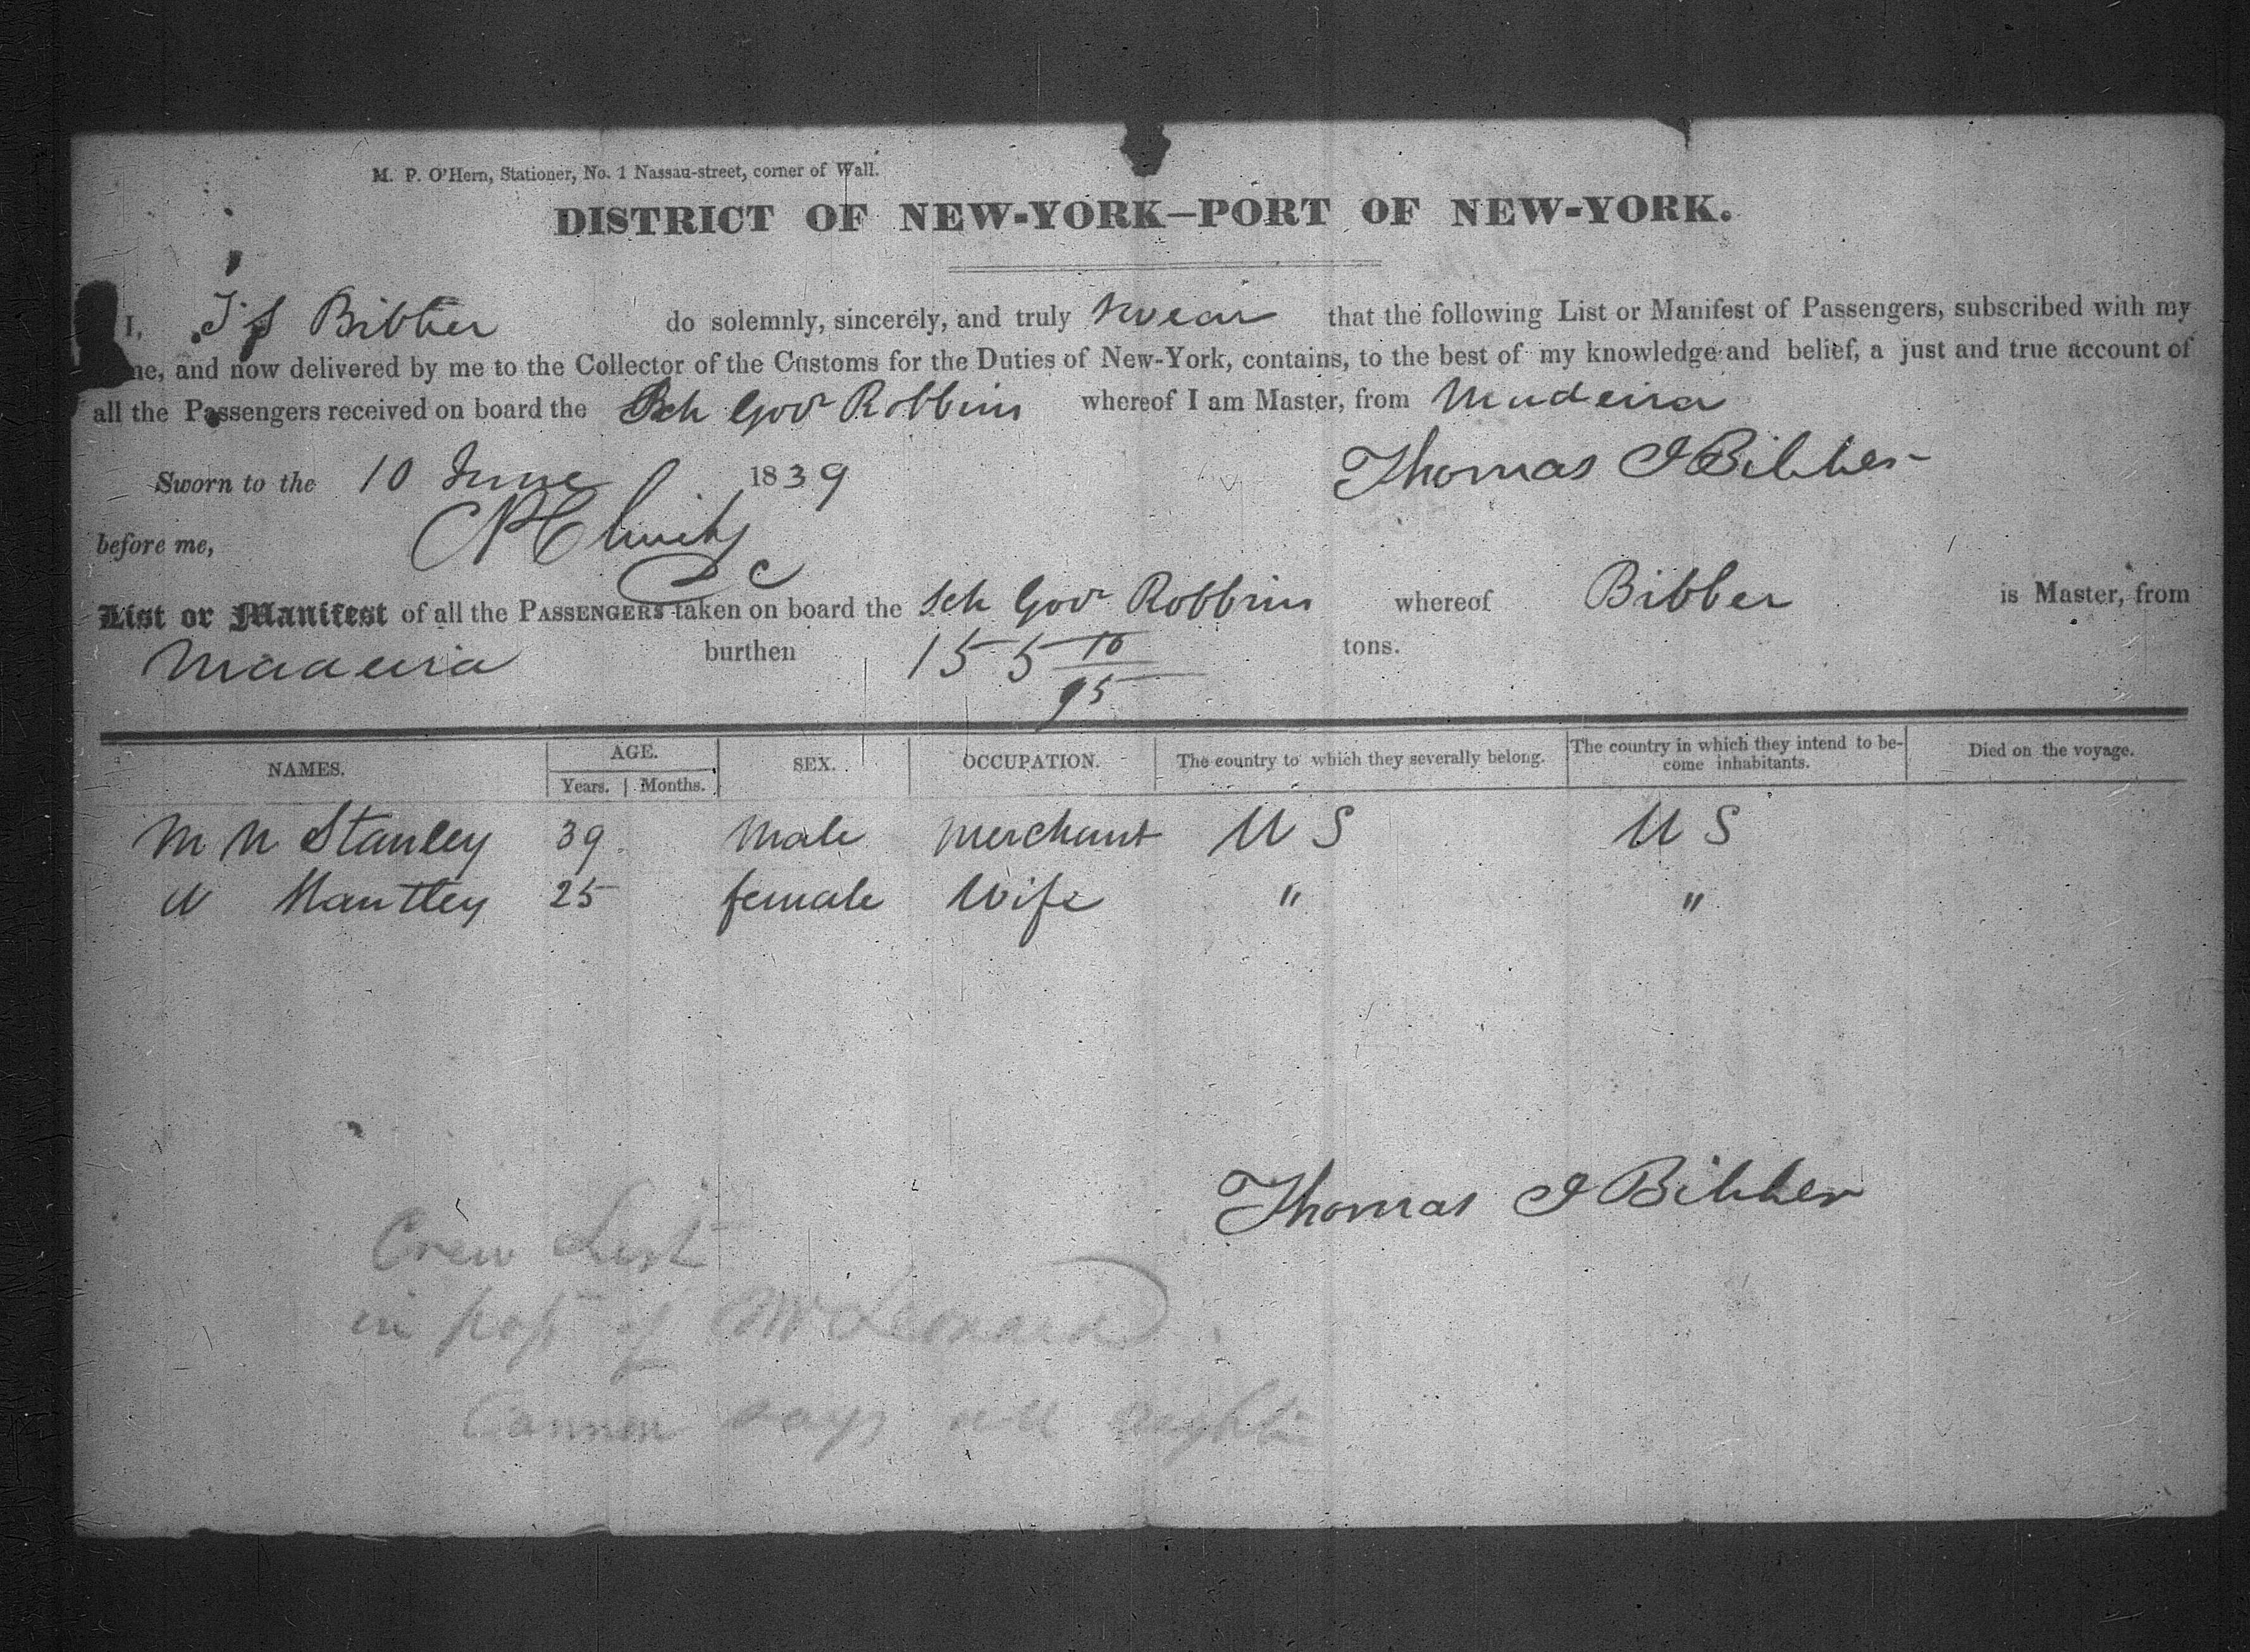 M. P. O'Hern, Stationer, No. 1 Nassau-street, corner of Wall.
DISTRICT OF NEW-YORK—PORT OF NEW-YORK.
I, T S Bibber do solemnly, sincerely, and truly swear that the following List or Manifest of Passengers, subscribed with my
me, and now delivered by me to the Collector of the Customs for the Duties of New-York, contains, to the best of my knowledge and belief, a just and true account of
all the Passengers received on board the Sch Gov Robbins whereof I am Master, from Madeira
Sworn to the 10 June 1839 Thomas J Bibber
before me,
List or Manifest of all the PASSENGERS taken on board the Sch Gov Robbins whereof Bibber is Master, from
Madeira burthen 155 10/95 tons.
NAMES. AGE. SEX. OCCUPATION. The country to which they severally belong. The country in which they intend to be-come inhabitants. Died on the voyage.
Years. Months.
M N Stanley 39 Male Merchant U S U S
N Stantley 25 female Wife " "
Thomas J Bibber
Crew List
in poss of Mr Leonard
Cannon says all right